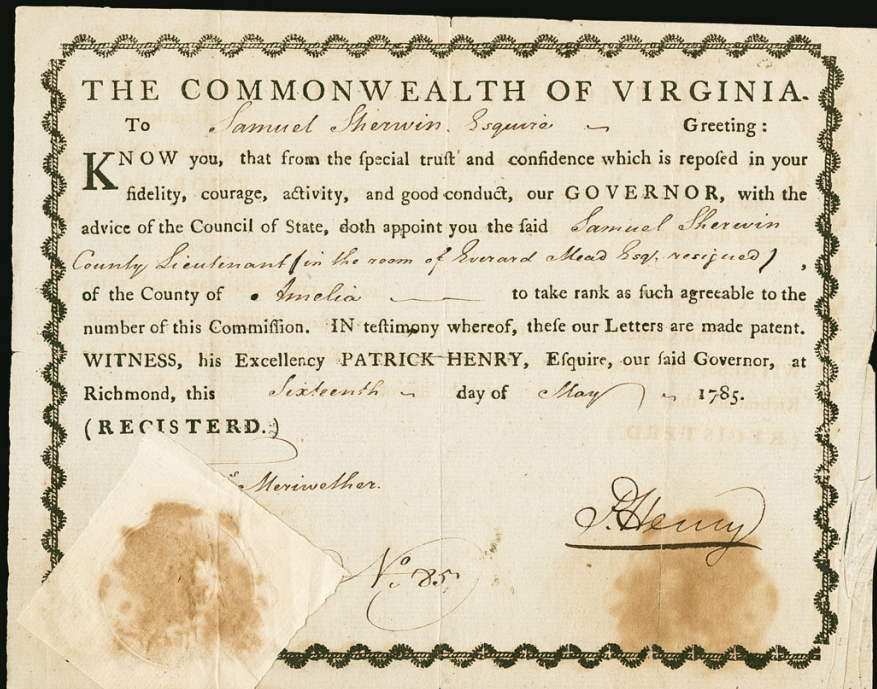 THE COMMONWEALTH OF VIRGINIA.
To Samuel Sherwin Esquire Greeting:
KNOW you, that from the ſpecial truſt and confidence which is repoſed in your
fidelity, courage, activity, and good conduct, our GOVERNOR, with the
advice of the Council of State, doth appoint you the ſaid Samuel Sherwin
County Lieutenant (in the room of Everard Mead Esqr. resigned) ,
of the County of Amelia to take rank as ſuch agreeable to the
number of this Commiſſion. IN teſtimony whereof, theſe our Letters are made patent.
WITNESS, his Excellency PATRICK HENRY, Eſquire, our ſaid Governor, at
Richmond, this Sixteenth day of May 1785.
(REGISTERD.)
Meriwether.
P. Henry
No. 85